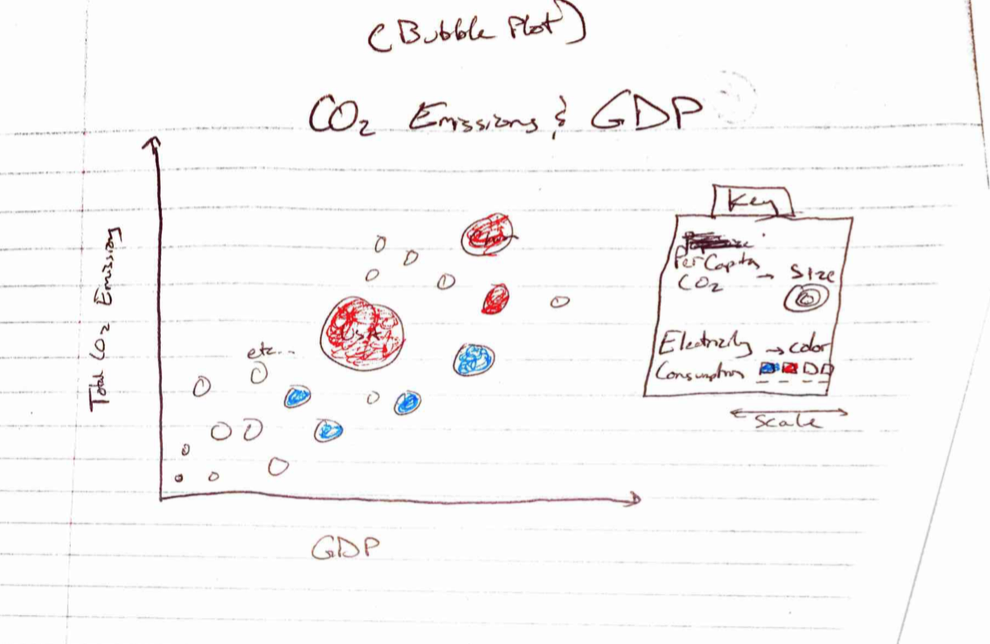 (Bubble Plot)
CO₂ Emissions & GDP
Total CO₂ Emission
GDP
etc...
USA
Key
Per Capita CO₂ → Size
Electricity Consumption → color
Scale